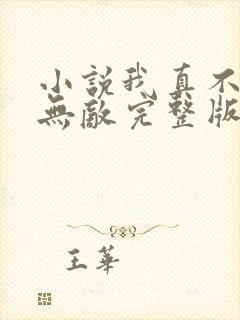 小說我真不
無敵完整版
王華